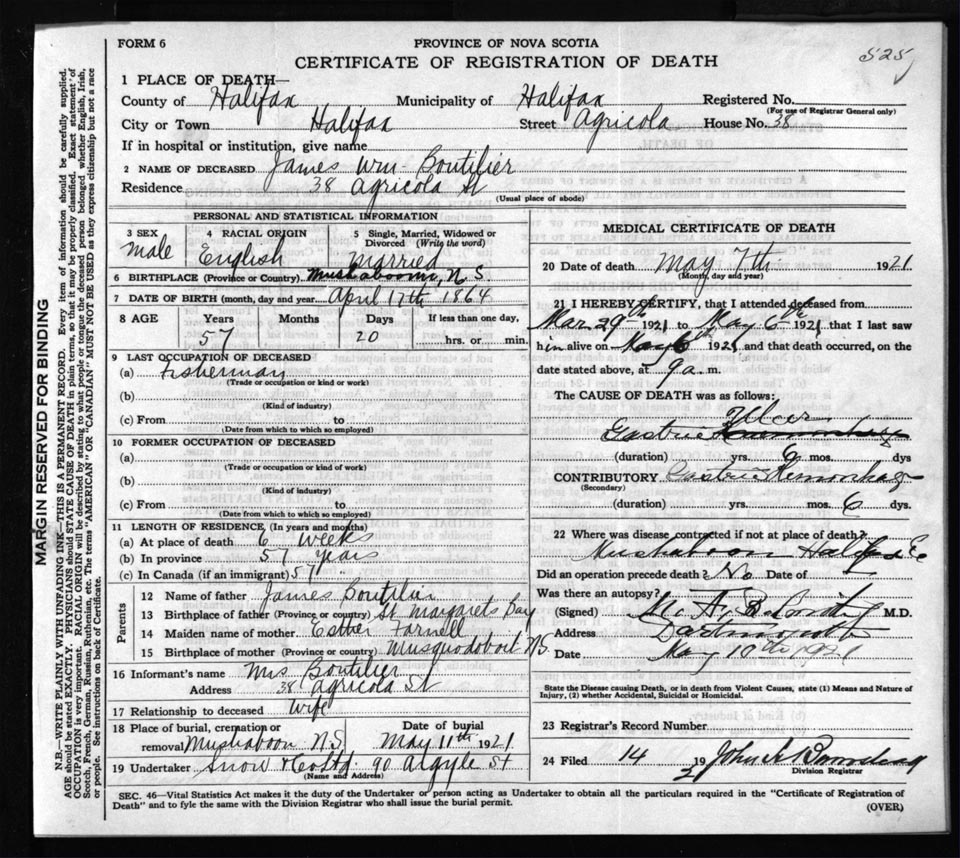 FORM 6
PROVINCE OF NOVA SCOTIA
CERTIFICATE OF REGISTRATION OF DEATH
525
1 PLACE OF DEATH—
County of Halifax Municipality of Halifax Registered No.
(For use of Registrar General only)
City or Town Halifax Street Agricola House No. 38
If in hospital or institution, give name
2 NAME OF DECEASED James Wm Boutilier
Residence 38 Agricola St
(Usual place of abode)
PERSONAL AND STATISTICAL INFORMATION
3 SEX Male
4 RACIAL ORIGIN English
5 Single, Married, Widowed or Divorced (Write the word) Married
6 BIRTHPLACE (Province or Country) Mushaboom, N.S.
7 DATE OF BIRTH (month, day and year) April 17th 1864
8 AGE Years Months Days If less than one day,
57 20 hrs. or min.
9 LAST OCCUPATION OF DECEASED
(a) Fisherman
(Trade or occupation or kind or work)
(b)
(Kind of industry)
(c) From to
(Date from which to which so employed)
10 FORMER OCCUPATION OF DECEASED
(a)
(Trade or occupation or kind of work)
(b)
(Kind of industry)
(c) From to
(Date from which to which so employed)
11 LENGTH OF RESIDENCE (In years and months)
(a) At place of death 6 weeks
(b) In province 57 years
(c) In Canada (if an immigrant) 57 "
Parents
12 Name of father James Boutilier
13 Birthplace of father (Province or country) St Margarets Bay
14 Maiden name of mother Esther Farnell
15 Birthplace of mother (Province or country) Musquodoboit N.S.
16 Informant's name Mrs Boutilier
Address 38 Agricola St
17 Relationship to deceased Wife
18 Place of burial, cremation or removal Mushaboon N.S. Date of burial May 11th 1921
19 Undertaker Snow & Co Ltd 90 Argyle St
(Name and Address)
MEDICAL CERTIFICATE OF DEATH
20 Date of death May 7th 1921
(Month, day and year)
21 I HEREBY CERTIFY, that I attended deceased from
Mar 29th 1921 to May 6th 1921 that I last saw
him alive on May 6th 1921 and that death occurred, on the
date stated above, at 9 a. m.
The CAUSE OF DEATH was as follows:
Ulcer
Gastric Hemorrhage
(duration) yrs. 9 mos. dys
CONTRIBUTORY Gastric Hemorrhage
(Secondary)
(duration) yrs. mos. 6 dys.
22 Where was disease contracted if not at place of death?
Mushaboon Halifax Co
Did an operation precede death? No Date of
Was there an autopsy?
(Signed) M.D.
Address Dartmouth
Date May 10th 1921
State the Disease causing Death, or in death from Violent Causes, state (1) Means and Nature of
Injury, (2) whether Accidental, Suicidal or Homicidal.
23 Registrar's Record Number
24 Filed 14 19 2 John A
Division Registrar
SEC. 46—Vital Statistics Act makes it the duty of the Undertaker or person acting as Undertaker to obtain all the particulars required in the "Certificate of Registration of
Death" and to fyle the same with the Division Registrar who shall issue the burial permit.
(OVER)
MARGIN RESERVED FOR BINDING
N.B.—WRITE PLAINLY WITH UNFADING INK—THIS IS A PERMANENT RECORD. Every item of information should be carefully supplied.
AGE should be stated EXACTLY. PHYSICIANS should STATE CAUSE OF DEATH in plain terms, so that it may be properly classified. Exact statement of
OCCUPATION is very important. RACIAL ORIGIN will be described by stating to what people or tongue the deceased person belonged whether English, Irish,
Scotch, French, German, Russian, Ruthenian, etc. The terms "AMERICAN" OR "CANADIAN" MUST NOT BE USED as they express citizenship but not a race
or people. See instructions on back of Certificate.